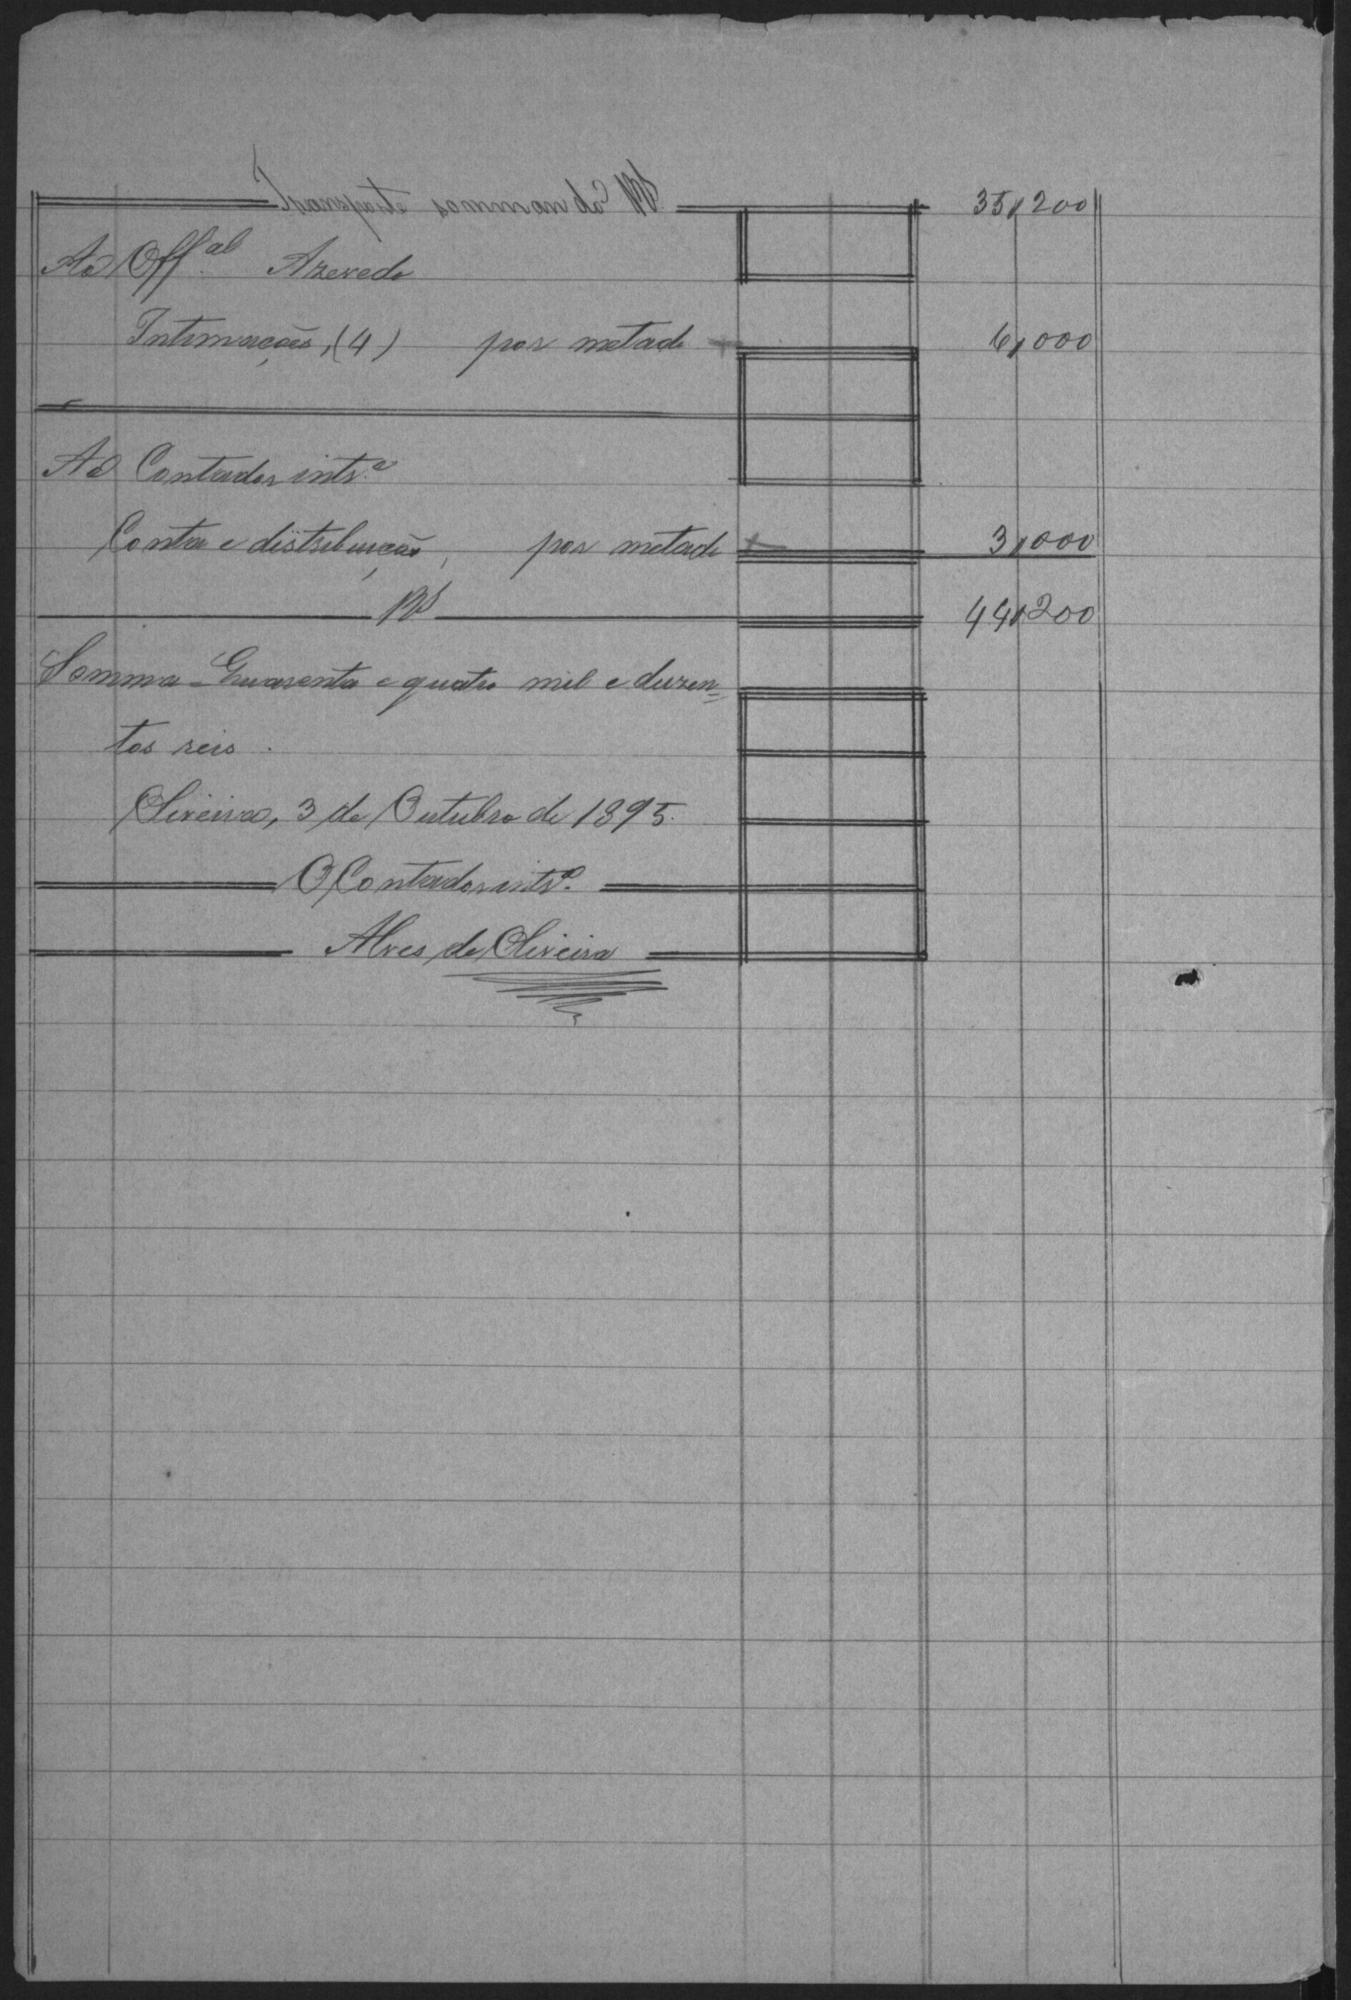 Transporte sommando Rs 35,200
Ao Off.al Azevedo
Intimações, (4) por metade 6,000
Ao Contador intr.o
Conta e distribuição, por metade 3,000
Rs 44,200
Somma - Quarenta e quatro mil e duzen=
tos reis.
Oliveira, 3 de Outubro de 1895.
O Contador intr.o
Alves de Oliveira